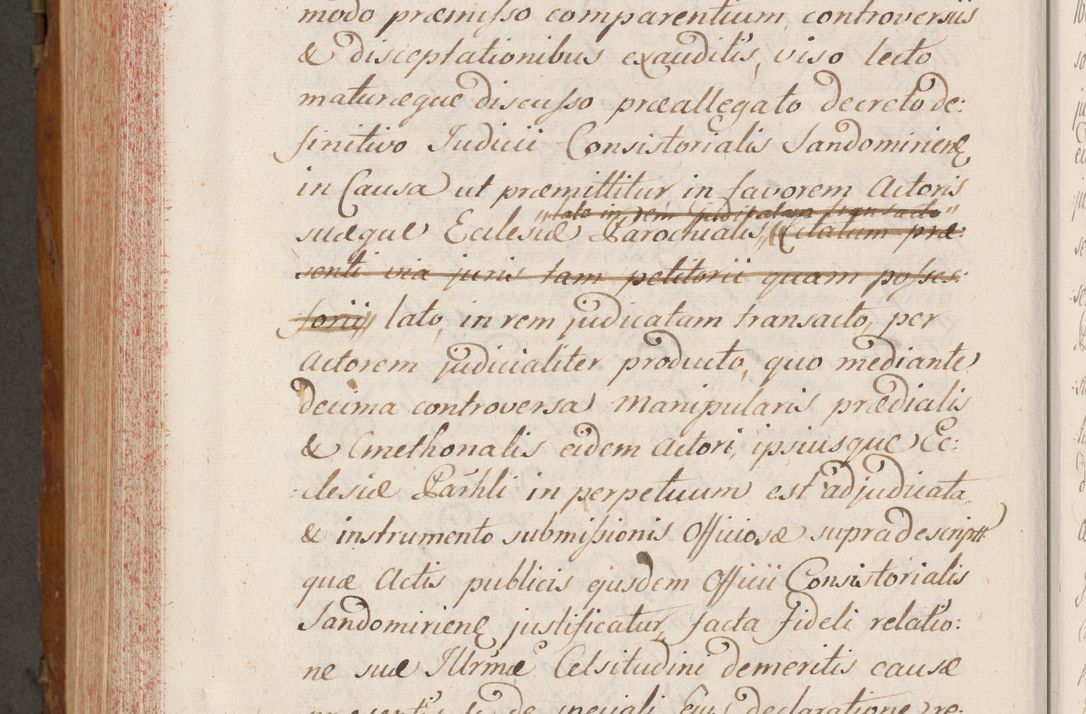 modo præmisso comparentium controversiis
& disceptationibus exauditis, viso lecto
matureque discusso præallegato decreto de:
finitivo Judicii Consistorialis Sandomirienẽ
in Causa ut præmittitur in favorem Actoris
"lato in rem judicatam transacto"
suæque Ecclesiæ Parochialis, Citatum præ:
senti via juris tam petitorii quam posses:
sorii lato, in rem judicatam transacto, per
Actorem judicialiter producto, quo mediante
decima controversa manipularis prædialis
& Cmethonalis eidem Actori, ipsiusque Ec:
clesiæ Parhli in perpetuum est adjudicata,
& instrumento submissionis Officiosæ supradescriptt
quæ Actis publicis ejusdem Officii Consistorialis
Sandomirienẽ justificatur, facta fideli relatio:
ne suæ Illrmæ Celsitudini demeritis causæ
de speciali Ejus declaratione re: